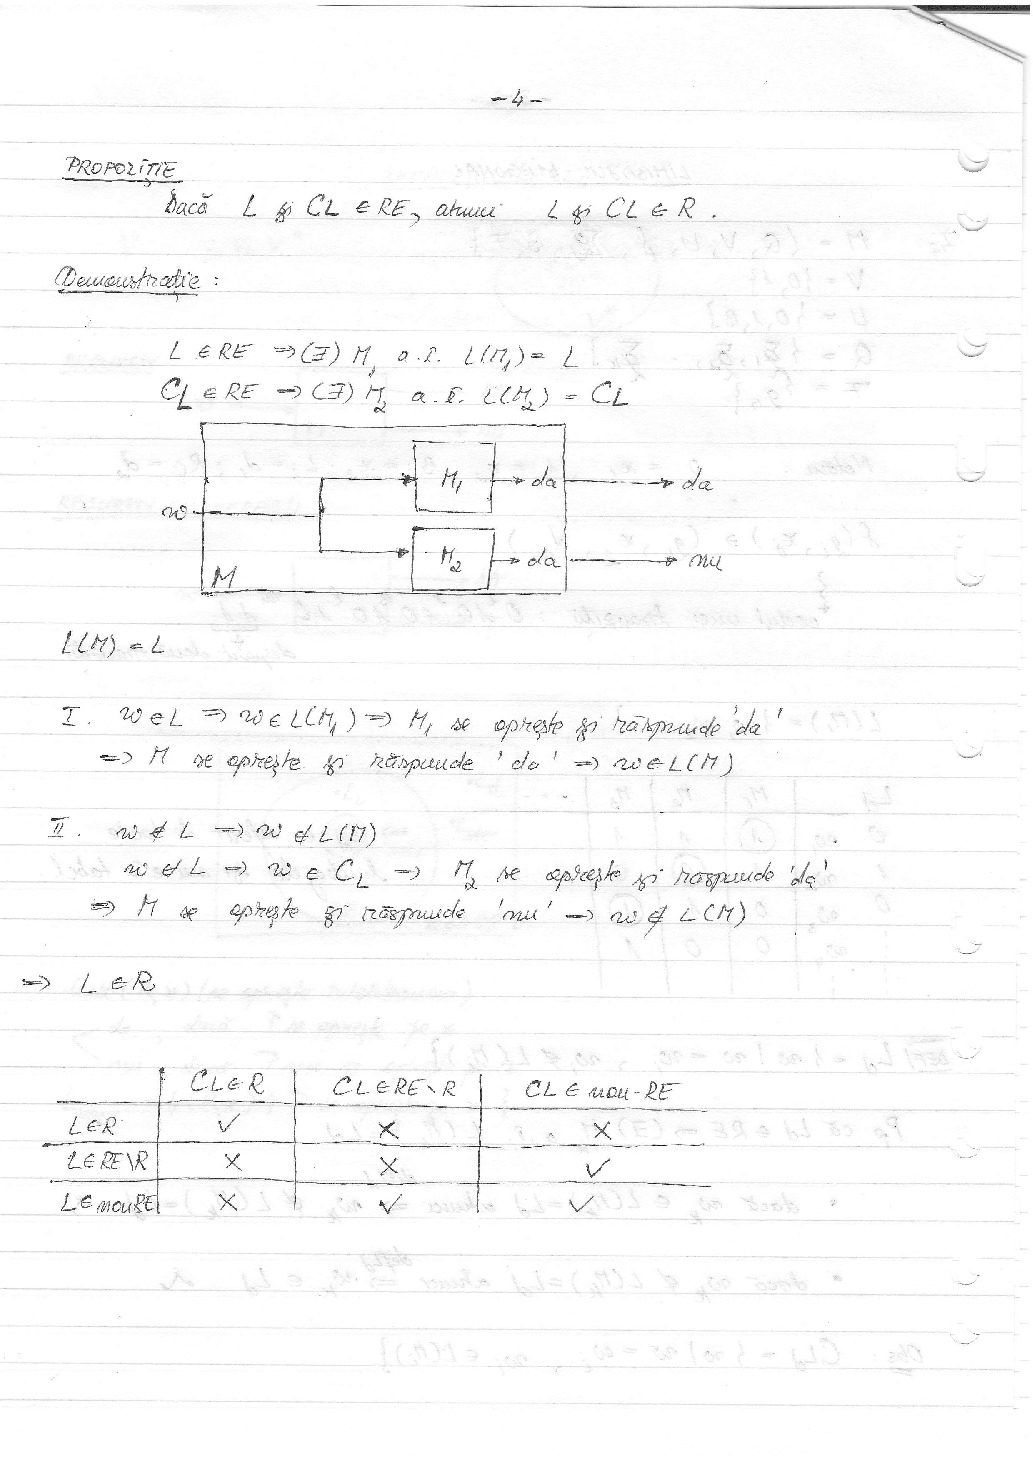 -4-
PROPOZIȚIE
Dacă L și CL ∈ RE, atunci L și CL ∈ R.
Demonstrație:
L ∈ RE ⇒ (∃) M₁ a.î. L(M₁) = L
CL ∈ RE ⇒ (∃) M₂ a.î. L(M₂) = CL
M₁ da da
w
M₂ da nu
M
L(M) = L
I. w ∈ L ⇒ w ∈ L(M₁) ⇒ M₁ se oprește și răspunde 'da'
⇒ M se oprește și răspunde 'da' ⇒ w ∈ L(M)
II. w ∉ L ⇒ w ∉ L(M)
w ∉ L ⇒ w ∈ CL ⇒ M₂ se oprește și răspunde 'da'
⇒ M se oprește și răspunde 'nu' ⇒ w ∉ L(M)
⇒ L ∈ R
CL∈R CL∈RE\R CL ∈ non-RE
L∈R ✓ × ×
L∈RE\R × × ✓
L∈nonRE × ✓ ✓